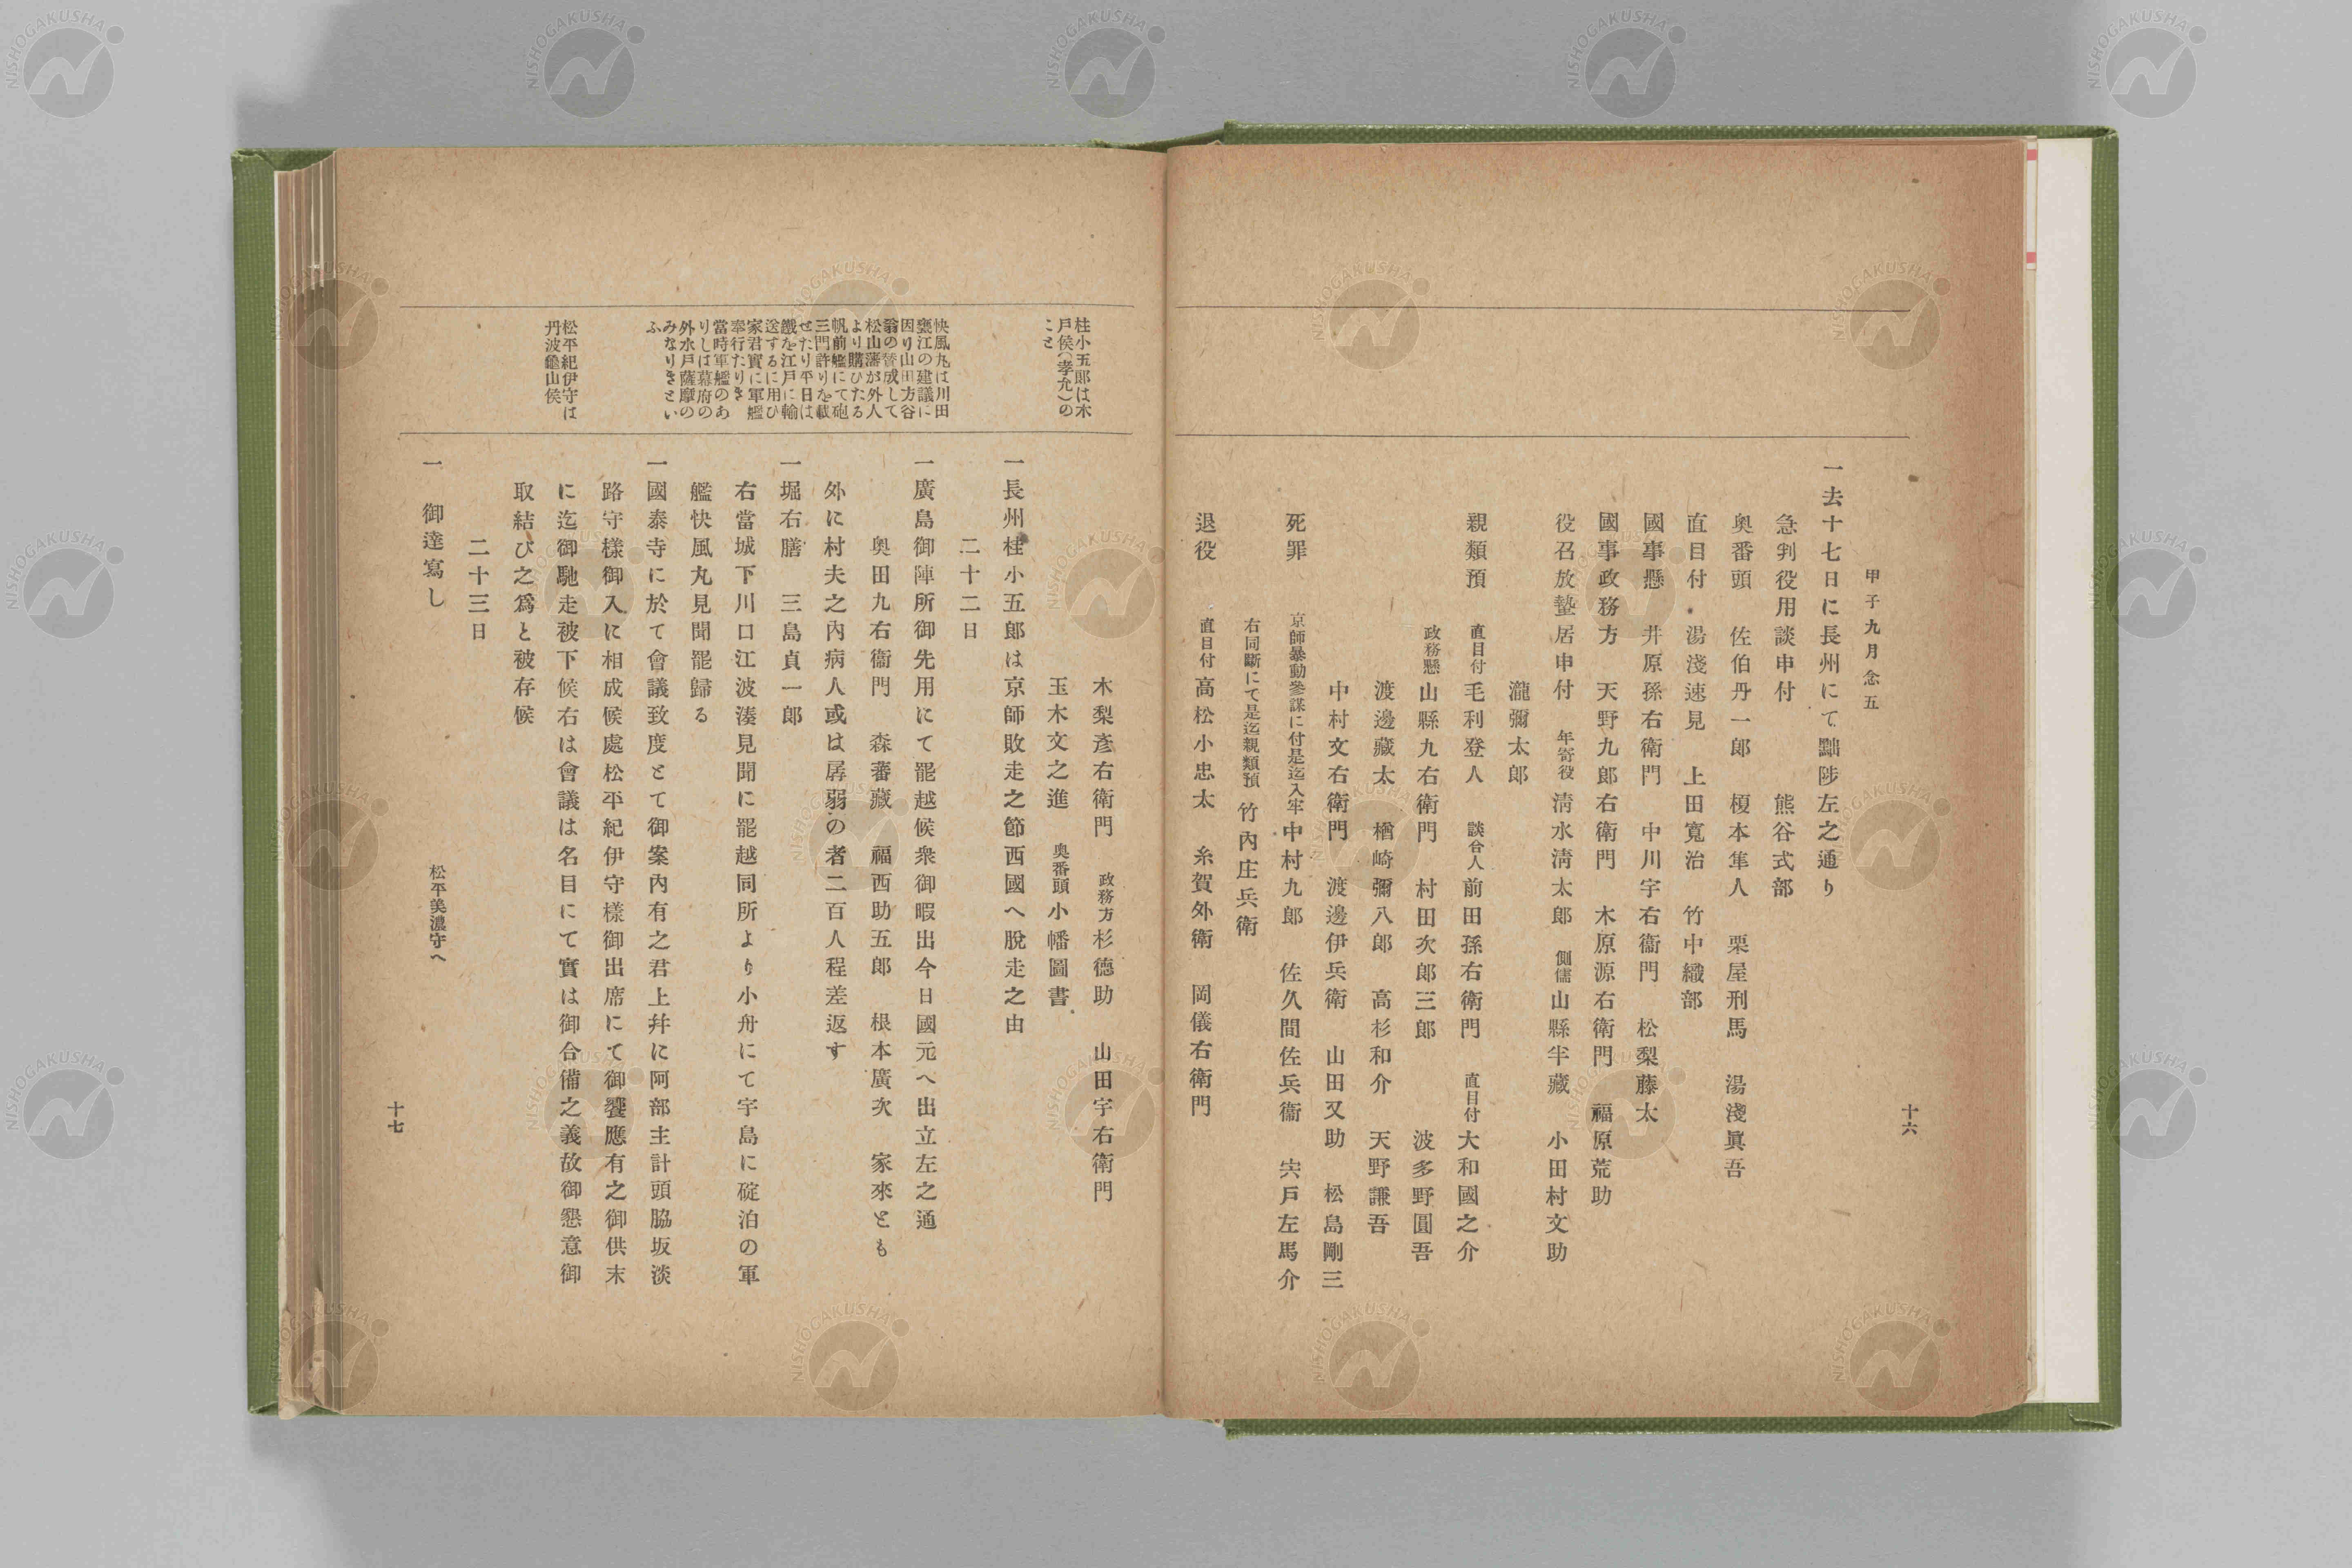 十六
甲子九月念五
一去十七日に長州にて黜陟左之通り
急判役用談申付　　熊谷式部
奥番頭　佐伯丹一郎　榎本隼人　栗屋刑馬　湯淺眞吾
直目付　湯淺速見　上田寬治　竹中織部
國事懸　井原孫右衛門　中川宇右衞門　松梨藤太
國事政務方　天野九郎右衛門　木原源右衛門　福原荒助
役召放蟄居申付　年寄役　淸水淸太郎　側儒　山縣半藏　小田村文助
瀧彌太郎
親類預　直目付　毛利登人　談合人　前田孫右衛門　直目付　大和國之介
政務懸　山縣九右衛門　村田次郎三郎　　波多野圓吾
渡邊藏太　楢崎彌八郎　高杉和介　天野謙吾
中村文右衛門　渡邊伊兵衛　山田又助　松島剛三
死罪　京師暴動參謀に付是迄入牢　中村九郎　佐久間佐兵衞　宍戶左馬介
右同斷にて是迄親類預　竹內庄兵衛
退役　直目付　高松小忠太　糸賀外衛　岡儀右衛門
桂小五郎は木
戶侯(孝允)の
こと
快風丸は川田
甕江の建議に
因り山田方谷
翁の替成して
松山藩が外人
より購ひたる
帆前艦にて砲
三門許りを載
せたり平日は
鐵を江戶に輸
送するに用ひ
家君實に軍艦
奉行たりき
當時軍艦のあ
りしは幕府の
外水戶薩摩の
みなりきとい
ふ
松平紀伊守は
丹波龜山侯
木梨彥右衛門　政務方　杉德助　山田宇右衛門
玉木文之進　奥番頭　小幡圖書
一長州桂小五郎は京師敗走之節西國へ脫走之由
二十二日
一廣島御陣所御先用にて罷越候衆御暇出今日國元へ出立左之通
奥田九右衞門　森蕃藏　福西助五郎　根本廣次　家來とも
外に村夫之內病人或は孱弱の者二百人程差返す
一堀右膳　三島貞一郎
右當城下川口江波湊見聞に罷越同所より小舟にて宇島に碇泊の軍
艦快風丸見聞罷歸る
一國泰寺に於て會議致度とて御案內有之君上幷に阿部主計頭脇坂淡
路守樣御入に相成候處松平紀伊守樣御出席にて御饗應有之御供末
に迄御馳走被下候右は會議は名目にて實は御合備之義故御懇意御
取結び之爲と被存候
二十三日
一　御達寫し
松平美濃守へ
十七